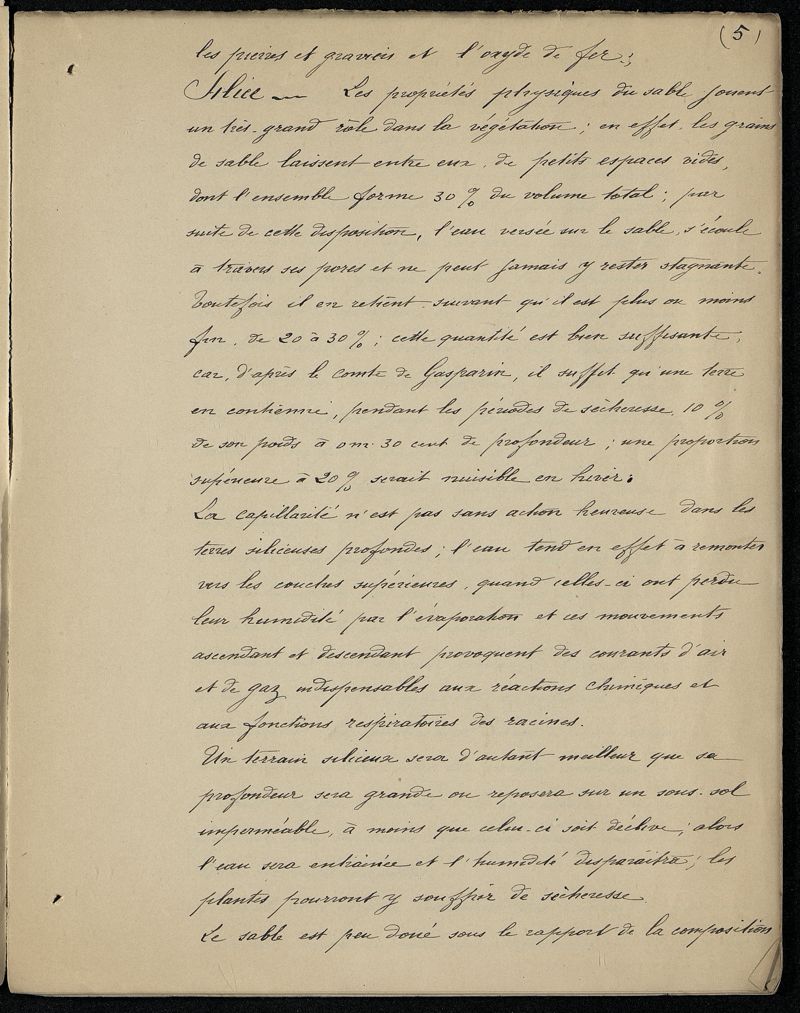 (5)
les pierres et graviers et l'oxyde de fer :;
Silice — Les propriétés physiques du sable jouent
un très-grand rôle dans la végétation ; en effet, les grains
de sable laissent entre eux, de petits espaces vides,
dont l'ensemble forme 30 % du volume total ; par
suite de cette disposition, l'eau versée sur le sable, s'écoule
à travers ses pores et ne peut jamais y rester stagnante.
Toutefois il en retient suivant qu'il est plus ou moins
fin, de 20 à 30 % ; cette quantité est bien suffisante,
car, d'après le comte de Gasparin, il suffit qu'une terre
en contienne, pendant les périodes de sècheresse, 10 %
de son poids à 0m.30 cent de profondeur ; une proportion
supérieure à 20 % serait nuisible en hiver.
La capillarité n'est pas sans action heureuse dans les
terres siliceuses profondes ; l'eau tend en effet à remonter
vers les couches supérieures, quand celles-ci ont perdu
leur humidité par l'évaporation et ces mouvements
ascendant et descendant provoquent des courants d'air
et de gaz indispensables aux réactions chimiques et
aux fonctions respiratoires des racines.
Un terrain siliceux sera d'autant meilleur que sa
profondeur sera grande ou reposera sur un sous-sol
imperméable, à moins que celui-ci soit déclive ; alors
l'eau sera entraînée et l'humidité disparaîtra ; les
plantes pourront y souffrir de sècheresse.
Le sable est peu doué sous le rapport de la composition